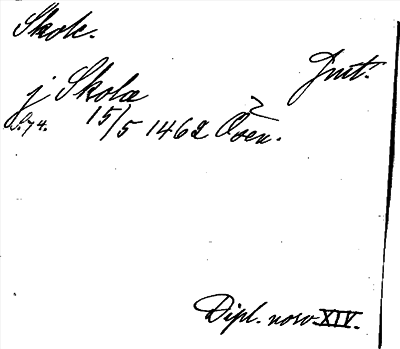 Skole.
Jmt.
j Skola
S. 74. 15/5 1462 Oven.
Dipl. norv. XIV.